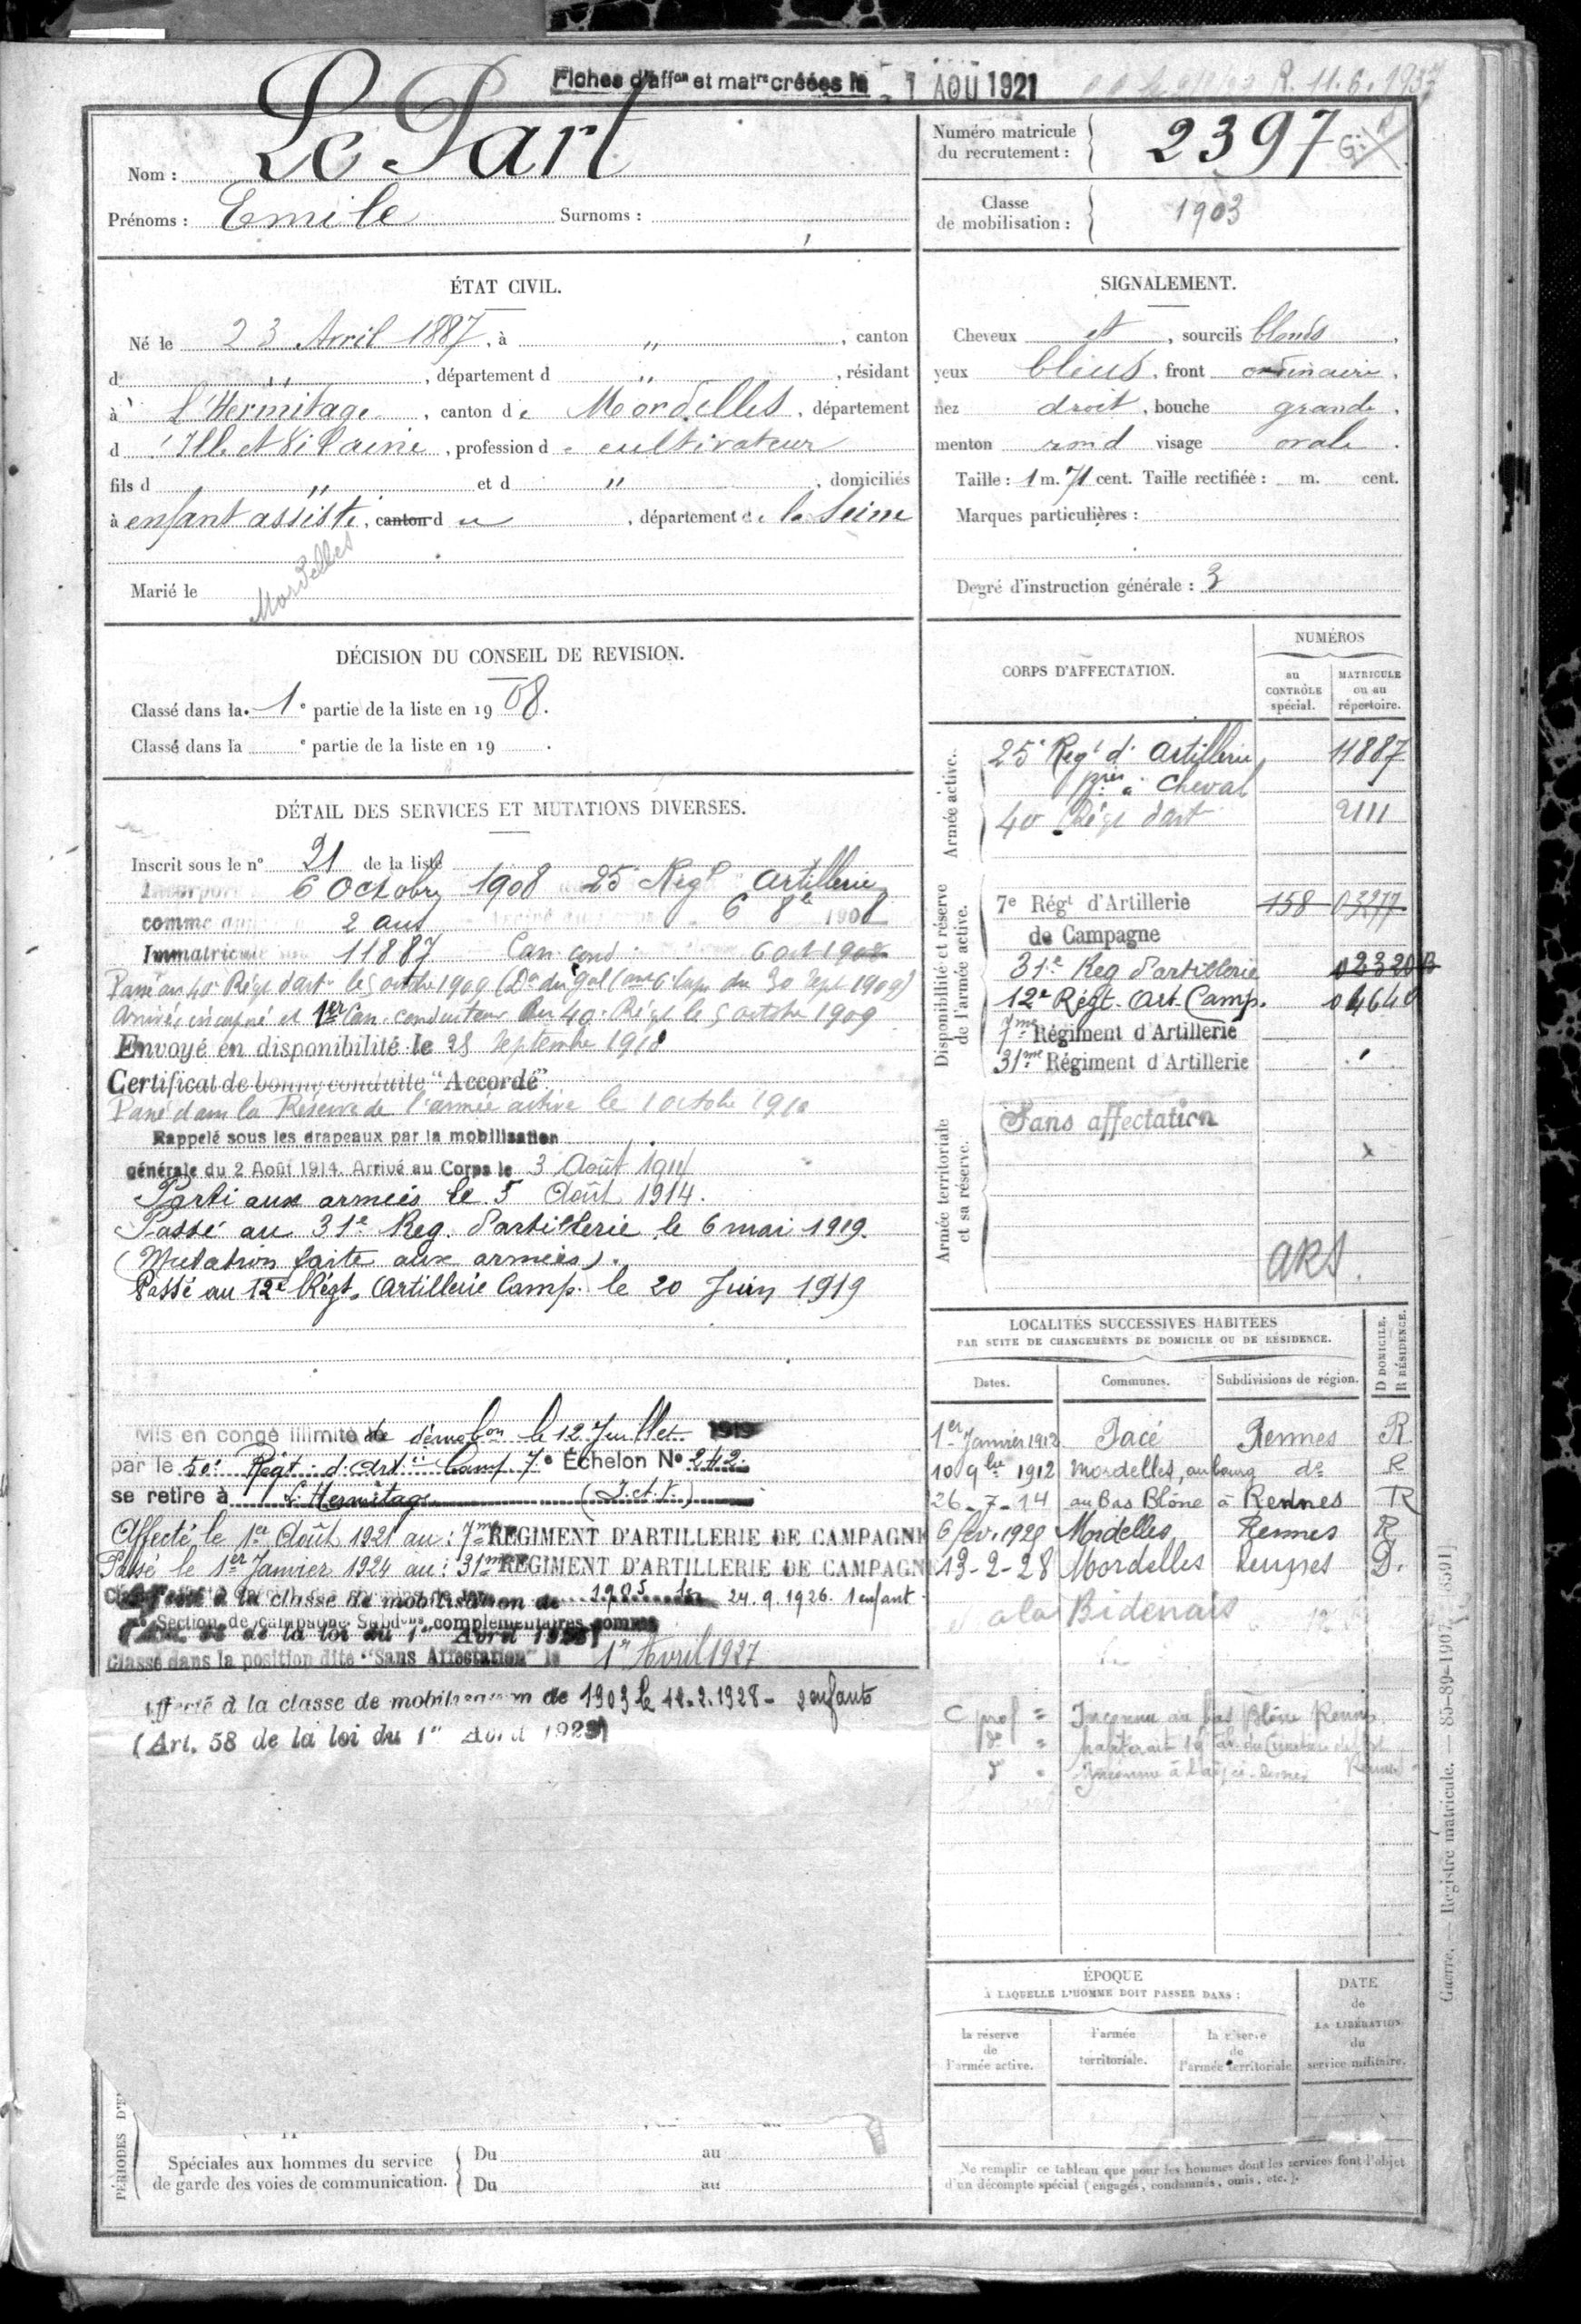 Fiches d'aff^on et mat^rs créées le - 1 AOU 1921
R. 11.6.1937
Nom : Le Part
Prénoms : Emile Surnoms :
Numéro matricule du recrutement : 2397
Classe de mobilisation : 1903
ÉTAT CIVIL.
Né le 23 Avril 1887, à " , canton
d " , département d " , résidant
à L'Hermitage , canton de Mordelles , département
d'Ille et Vilaine , profession de cultivateur
fils d " et d " , domiciliés
à enfant assisté , canton d , département de la Seine
Mordelles
Marié le
SIGNALEMENT.
Cheveux et , sourcils blonds ,
yeux bleus , front ordinaire ,
nez droit , bouche grande ,
menton rond visage ovale .
Taille : 1 m. 71 cent. Taille rectifiée : m. cent.
Marques particulières :
Degré d'instruction générale : 3
DÉCISION DU CONSEIL DE REVISION.
Classé dans la 1e partie de la liste en 1908.
Classé dans la e partie de la liste en 19 .
DÉTAIL DES SERVICES ET MUTATIONS DIVERSES.
Inscrit sous le n° 21 de la liste
6 Octobre 1908 25e Régt Artillerie
comme 2 ans 6 8bre 1908
Immatriculé 11887 Can cond 6 oct 1908
Passé au 40e Régt d'art le 5 octobre 1909 (Don du Gal Comt 6e Corps du 30 Sept 1909)
Arrivé, incorporé et 1er Can. conducteur au 40e Régt le 5 octobre 1909
Envoyé en disponibilité le 28 Septembre 1910
Certificat de bonne conduite "Accordé"
Passé dans la Réserve de l'armée active le 1 octobre 1910
Rappelé sous les drapeaux par la mobilisation
générale du 2 Août 1914. Arrivé au Corps le 3 Août 1914
Parti aux armées le 5 Août 1914.
Passé au 31e Reg. d'artillerie le 6 mai 1919.
(Mutation faite aux armées).
Passé au 12e Régt. Artillerie Camp. le 20 Juin 1919
Mis en congé illimité de démobon le 12 Juillet 1919
par le 50e Régt d'Artie Camp. 7e Échelon N° 242
se retire à L'Hermitage (I. et V.)
Affecté le 1er Août 1921 au : 7me REGIMENT D'ARTILLERIE DE CAMPAGNE
Passé le 1er Janvier 1924 au : 31me REGIMENT D'ARTILLERIE DE CAMPAGNE
à la classe de mobilisation de 1905 le 24.9.1926. 1 enfant
Section de campagne Subdons complémentaires
de la loi du 1er Avril
Classé dans la position dite "Sans Affectation" le 1er Avril 1927
Affecté à la classe de mobilisation de 1903 le 12.2.1928 - 2 enfants
(Art. 58 de la loi du 1er Avril 1923)
PÉRIODES D'E
Spéciales aux hommes du service de garde des voies de communication. Du au
Du au
CORPS D'AFFECTATION.
NUMÉROS
au CONTRÔLE spécial.
MATRICULE ou au répertoire.
Armée active.
25e Regt d'Artillerie 11887
à Cheval
40 Régt d'art 2111
Disponibilité et réserve de l'armée active.
7e Régt d'Artillerie 158 03277
de Campagne
31e Reg d'artillerie 02320
12e Régt. Art. Camp. 04640
7me Régiment d'Artillerie
31me Régiment d'Artillerie
Armée territoriale et sa réserve.
Sans affectation
LOCALITÉS SUCCESSIVES HABITÉES
PAR SUITE DE CHANGEMENTS DE DOMICILE OU DE RÉSIDENCE.
D DOMICILE. R RÉSIDENCE.
Dates. Communes. Subdivisions de région.
1er Janvier 1912 Pacé Rennes R
10 9bre 1912 Mordelles, au bourg do R
26-7-14 au Bas Blône à Rennes R
6 fév. 1925 Mordelles Rennes R
13-2-28 Mordelles Rennes D.
à la Bidenais
C prof = Inconnu au bas Blône Rennes
do = habiterait 19
Inconnu à Rennes
ÉPOQUE
À LAQUELLE L'HOMME DOIT PASSER DANS :
la réserve de l'armée active.
l'armée territoriale.
la réserve de l'armée territoriale
DATE de LA LIBÉRATION du service militaire.
Ne remplir ce tableau que pour les hommes dont les services font l'objet
d'un décompte spécial (engagés, condamnés, omis, etc.).
Guerre. — Registre matricule. — 85-89-1907.